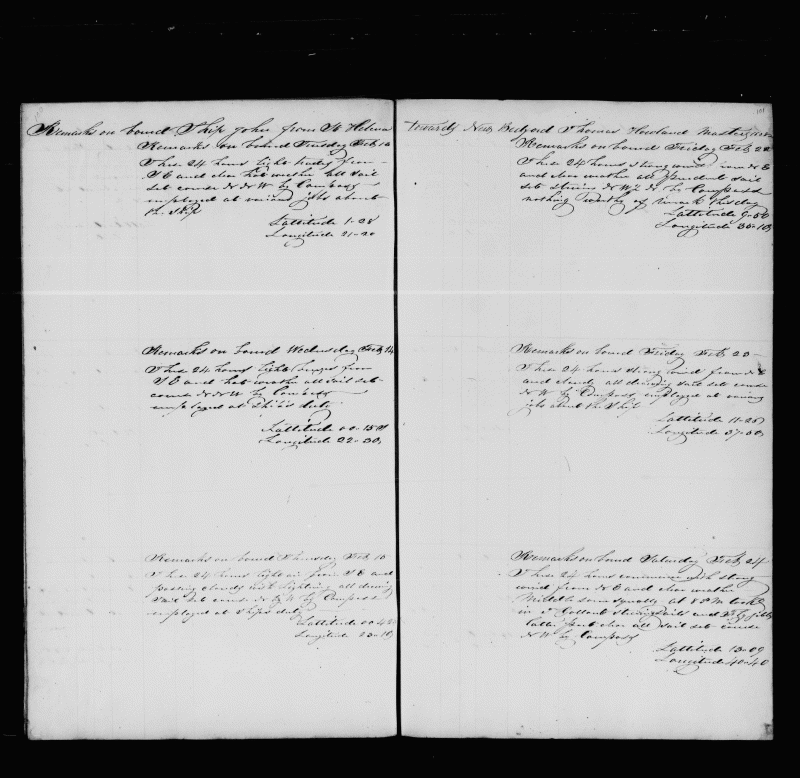 Remarks on bourd Ship John from St Helena
Remarks on bourd Tuesday Feb 13
These 24 hours light trades from
S E and clear hot weather all sail
set course N W by Compass
employed at various jobs about
the Ship
Lattitude 1-28
Longitude 21-20
Remarks on bourd Wednesday Feb 14
These 24 hours light breezes from
S E and hot weather all sail set
course N W by Compass
employed at Ships duty
Lattitude 00-15
Longitude 22-30
Remarks on bourd Thursday Feb 15
These 24 hours light air from S E and
passing clouds with lightning all drawing
sail set course N W by Compass
employed at Ships duty
Lattitude 00-42
Longitude 23-10
101
Towards New Bedford Thomas Howland Master
Remarks on bourd Friday Feb 22
These 24 hours strong wind from N E
and clear weather all prudent sail
set steering N W by Compass
nothing worthy of remark this day
Lattitude 9-50
Longitude 35-10
Remarks on bourd Friday Feb 23
These 24 hours strong wind from N E
and cloudy all drawing sail set course
N W by Compass employed at various
jobs about the Ship
Lattitude 11-25
Longitude 37-50
Remarks on bourd Saturday Feb 24
These 24 hours commences with strong
wind from N E and clear weather
Middle some squally at 8 P M took
in Gallant studing sails and Jibb
latter part clear all sail set course
N W by Compass
Lattitude 13-09
Longitude 40-40